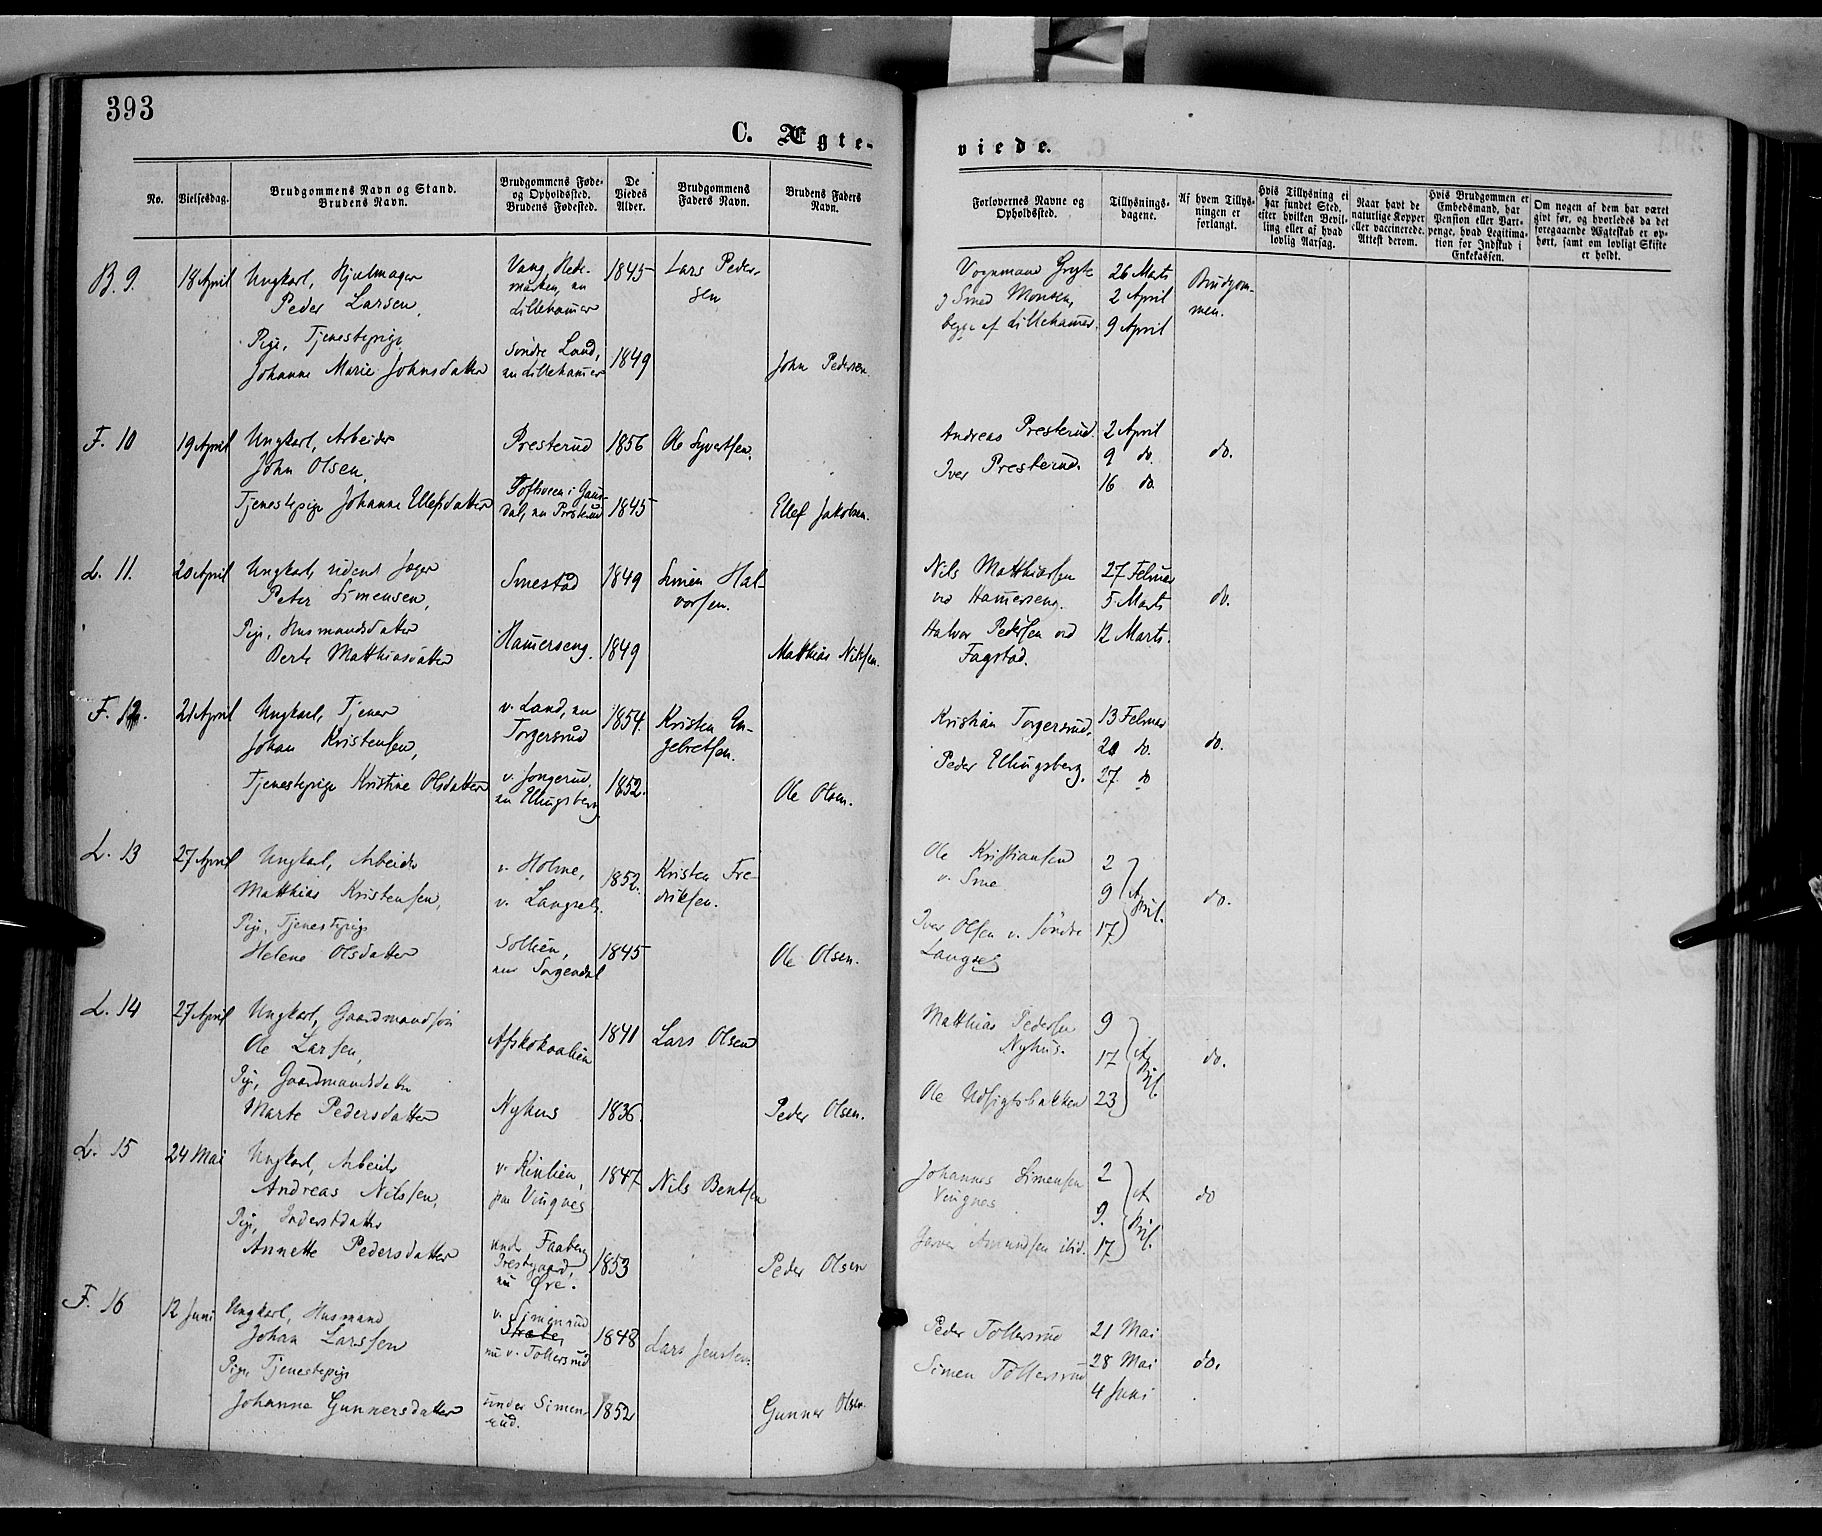 393
C. Ægte-
viede.
No.
Vielsesdag.
Brudgommens Navn og Stand.
Brudens Navn.
Brudgommens Føde-
og Opholdssted.
Brudens Fødested.
De
Viedes
Alder.
Brudgommens
Faders Navn.
Brudens Faders
Navn.
Forlovernes Navne og
Opholdssted.
Tillysnings-
dagene.
Af hvem Tillys-
ningen er
forlangt.
Hvis Tillysning ei
har fundet Sted,
efter hvilken Bevil-
ling eller af hvad
lovlig Aarsag.
Naar havt de
naturlige Kopper
eller vaccinerede.
Attest derom.
Hvis Brudgommen er
Embedsmand, har
Pension eller Vart-
penge, hvad Legitima-
tion for Indskud i
Enkekassen.
Om nogen af dem har været
givt før, og hvorledes da det
foregaaende Ægteskab er op-
hørt, samt om lovligt Skifte
er holdt.
B. 9.
18 April
Ungkarl, Hjulmager
Peder Larsen,
Pige, Tjenestepige
Johanne Marie Johnsdatter
Vang, Hede-
marken, nu
Lillehamer
Søndre Land,
nu Lillehamer
1845
1849
Lars Peder-
sen
John Pedersen.
Vognmand Gryte
og Smed Monsen,
begge af Lillehamer.
26 Marts
2 April
9 April
Brudgom-
men.
F. 10
19 April
Ungkarl, Arbeider
John Olsen,
Tjenestepige Johanne Ellefsdatter
Presterud
i Gaus-
dal, nu Presterud
1856
1845
Ole Syvertsen.
Ellef Jakobsen.
Andreas Presterud.
Iver Presterud.
2 April
9 do.
16 do.
do.
L. 11.
20 April
Ungkarl, Jæger
Peter Simensen,
Pige, Husmandsdatter
Berte Matthiasdatter
Smestad
Hamerseng.
1849
1849
Simen Hal-
vorsen.
Matthias Nilsen.
Nils Matthiassen
ved Hamerseng.
Halvor Pedersen ved
Fagstad.
27 Februar
5 Marts
12 Marts.
do.
F. 12.
21 April
Ungkarl, Tjener
Johan Kristensen,
Tjenestepige Kristine Olsdatter
v. Land, nu
Torgersrud
v. Jongerud,
nu Ellingsberg
1854.
1852.
Kristen En-
gebretsen.
Ole Olsen.
Kristian Torgersrud.
Peder Ellingsberg.
13 Februar
20 do.
27. do
do.
L. 13
27 April
Ungkarl, Arbeider
Matthias Kristensen,
Pige, Tjenestepige
Helene Olsdatter
v. Holme,
v. Langseth.
Sollien,
nu Sorgendal
1852.
1845
Kristen Fre-
driksen.
Ole Olsen.
Ole Kristiansen
v. Sme
Iver Olsen v. Søndre
Langset
2
9
17
April.
do.
L. 14
27 April
Ungkarl, Gaardmandssøn
Ole Larsen,
Pige, Gaardmandsdatter
Marte Pedersdatter
Nyhus
1841
1836
Lars Olsen
Peder Olsen.
Matthias Pedersen
Nyhus.
Ole Udsigtsbakken
9
17
23
April.
do.
L. 15
24 Mai
Ungkarl, Arbeider
Andreas Nilssen,
Pige, Inderstdatter
Annette Pedersdatter
v. Kinlien,
paa Vingnes
under Faaberg
Prestgaard,
nu Øre.
1847
1853
Nils Bentsen
Peder Olsen
Johannes Simensen
Vingnes
Amundsen ibid.
2
9.
17
April.
do
F. 16
12 Juni
Ungkarl, Husmand
Johan Larssen
Pige, Tjenestepige
Johanne Gunnersdatter
v. Simenrud
nu v. Tollersrud
under Simen-
rud.
1848
1852
Lars Jensen.
Gunner Olsen.
Peder Tollersrud
Simen Tollersrud
21 Mai
28 Mai
4 Juni
do.